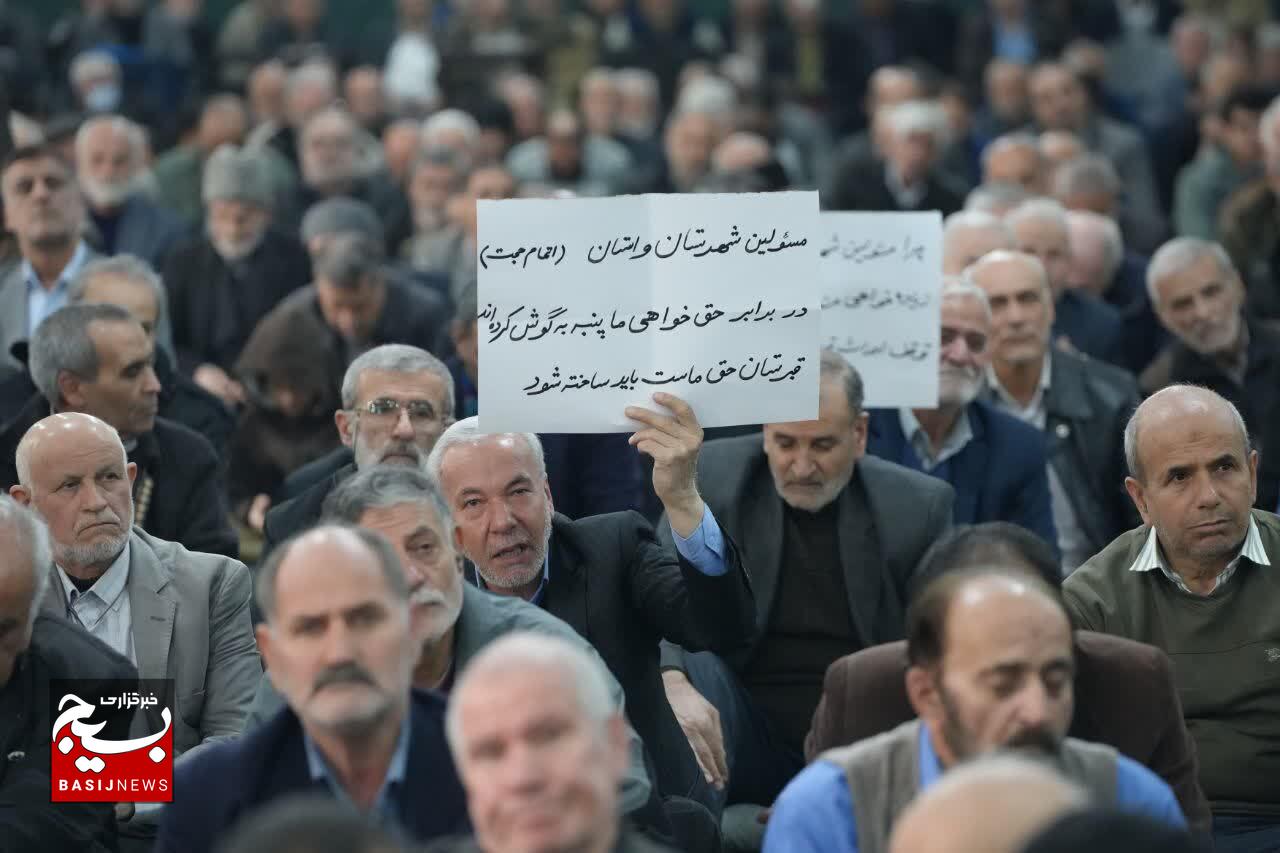 مسؤلین شهرستان و استان (اتمام حجت)
در برابر حق خواهی ما پنبه به گوش کرده‌اند
قبرستان حق ماست باید ساخته شود
چرا مسئولین
خواهی
توقف احداث
خبرگزاری
بسیج
BASIJNEWS